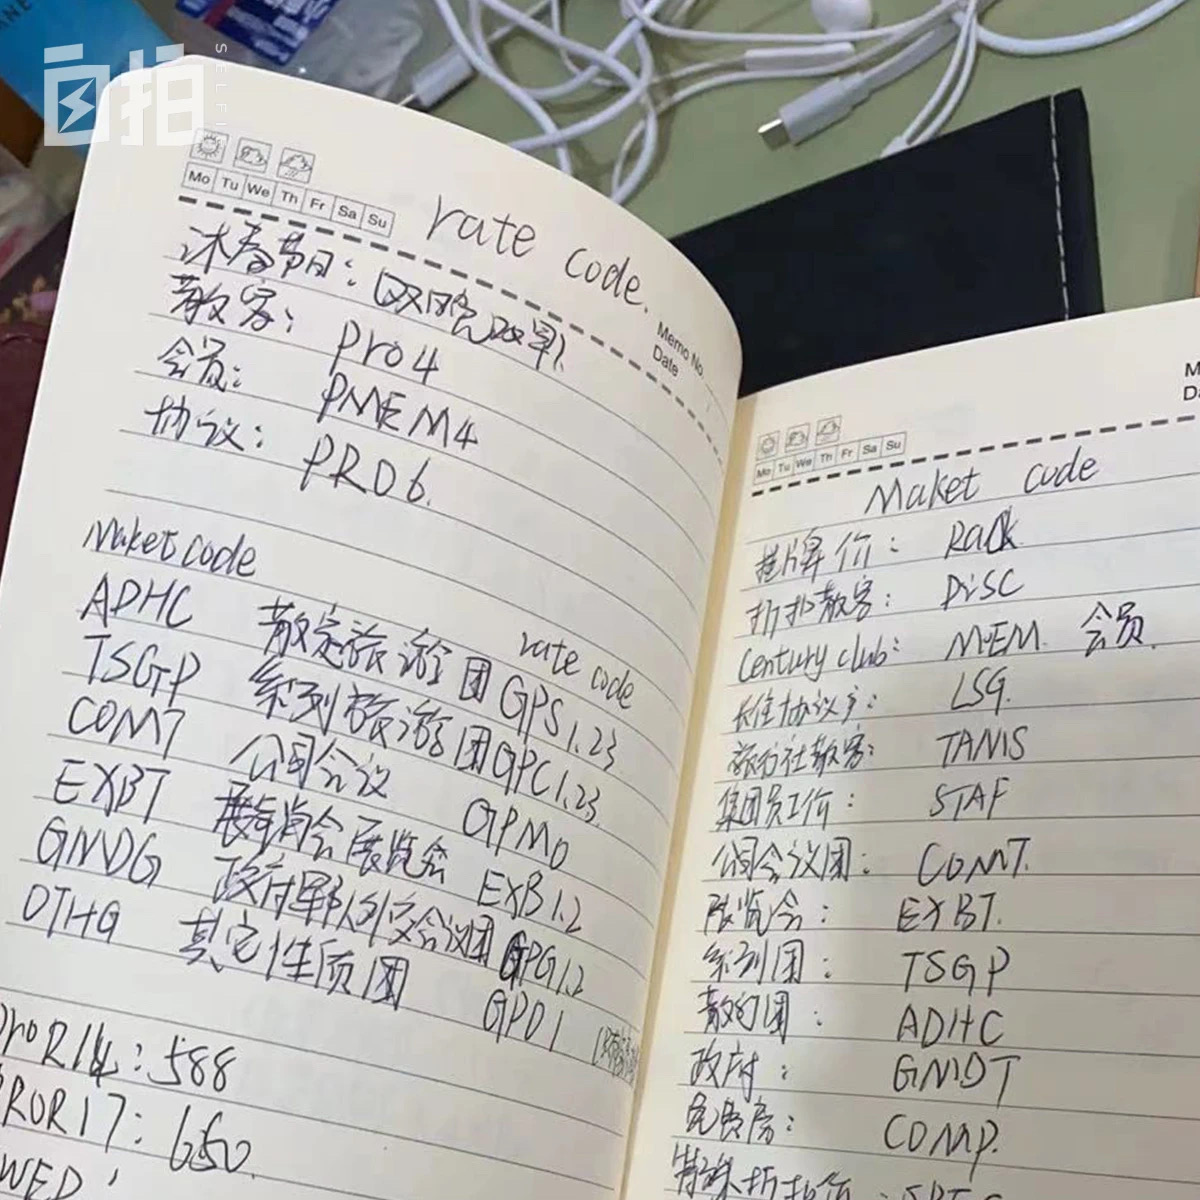 自拍
SELFI
Mo Tu We Th Fr Sa Su
rate code.
Memo No.
Date
沐春节日：双晚双早
散客： pro4
会员： PMEM4
协议： PRO6.
Maket code
ADHC 散定旅游团
rate code
GPS1.23
TSGP 系列旅游团 GPC1.23
COMT 公司会议 GPMO
EXBT 展销会展览会 EXB1.2
GMDG 政府军队外交会议团 GPG1.2
OTHG 其它性质团 GPO1
PROR14：588
PROR17：650
WED
Mo Tu We Th Fr Sa Su
Maket code
挂牌价： Rack
折扣散客： DiSC
Century club： MEM. 会员.
长住协议户： LSG.
旅行社散客： TANIS
集团员工价： STAF
公司会议团： COMT.
展览会： EXBT.
系列团： TSGP
散的团： ADHC
政府： GMDT
免费房： COMP.
特殊折扣价：